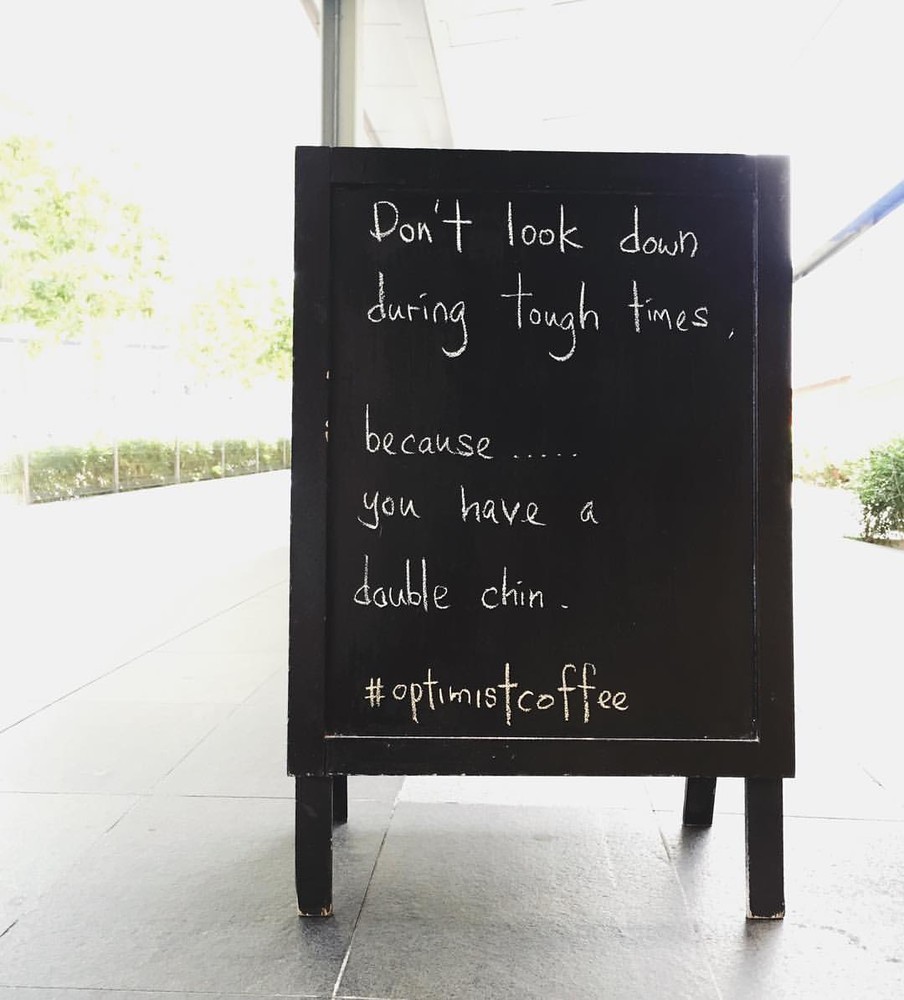 Don't look down
during tough times,
because.....
you have a
double chin.
#optimistcoffee